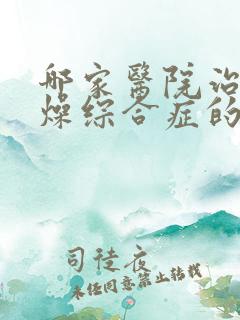 哪家醫院治
燥綜合症的
司徒夜
未经同意禁止转载